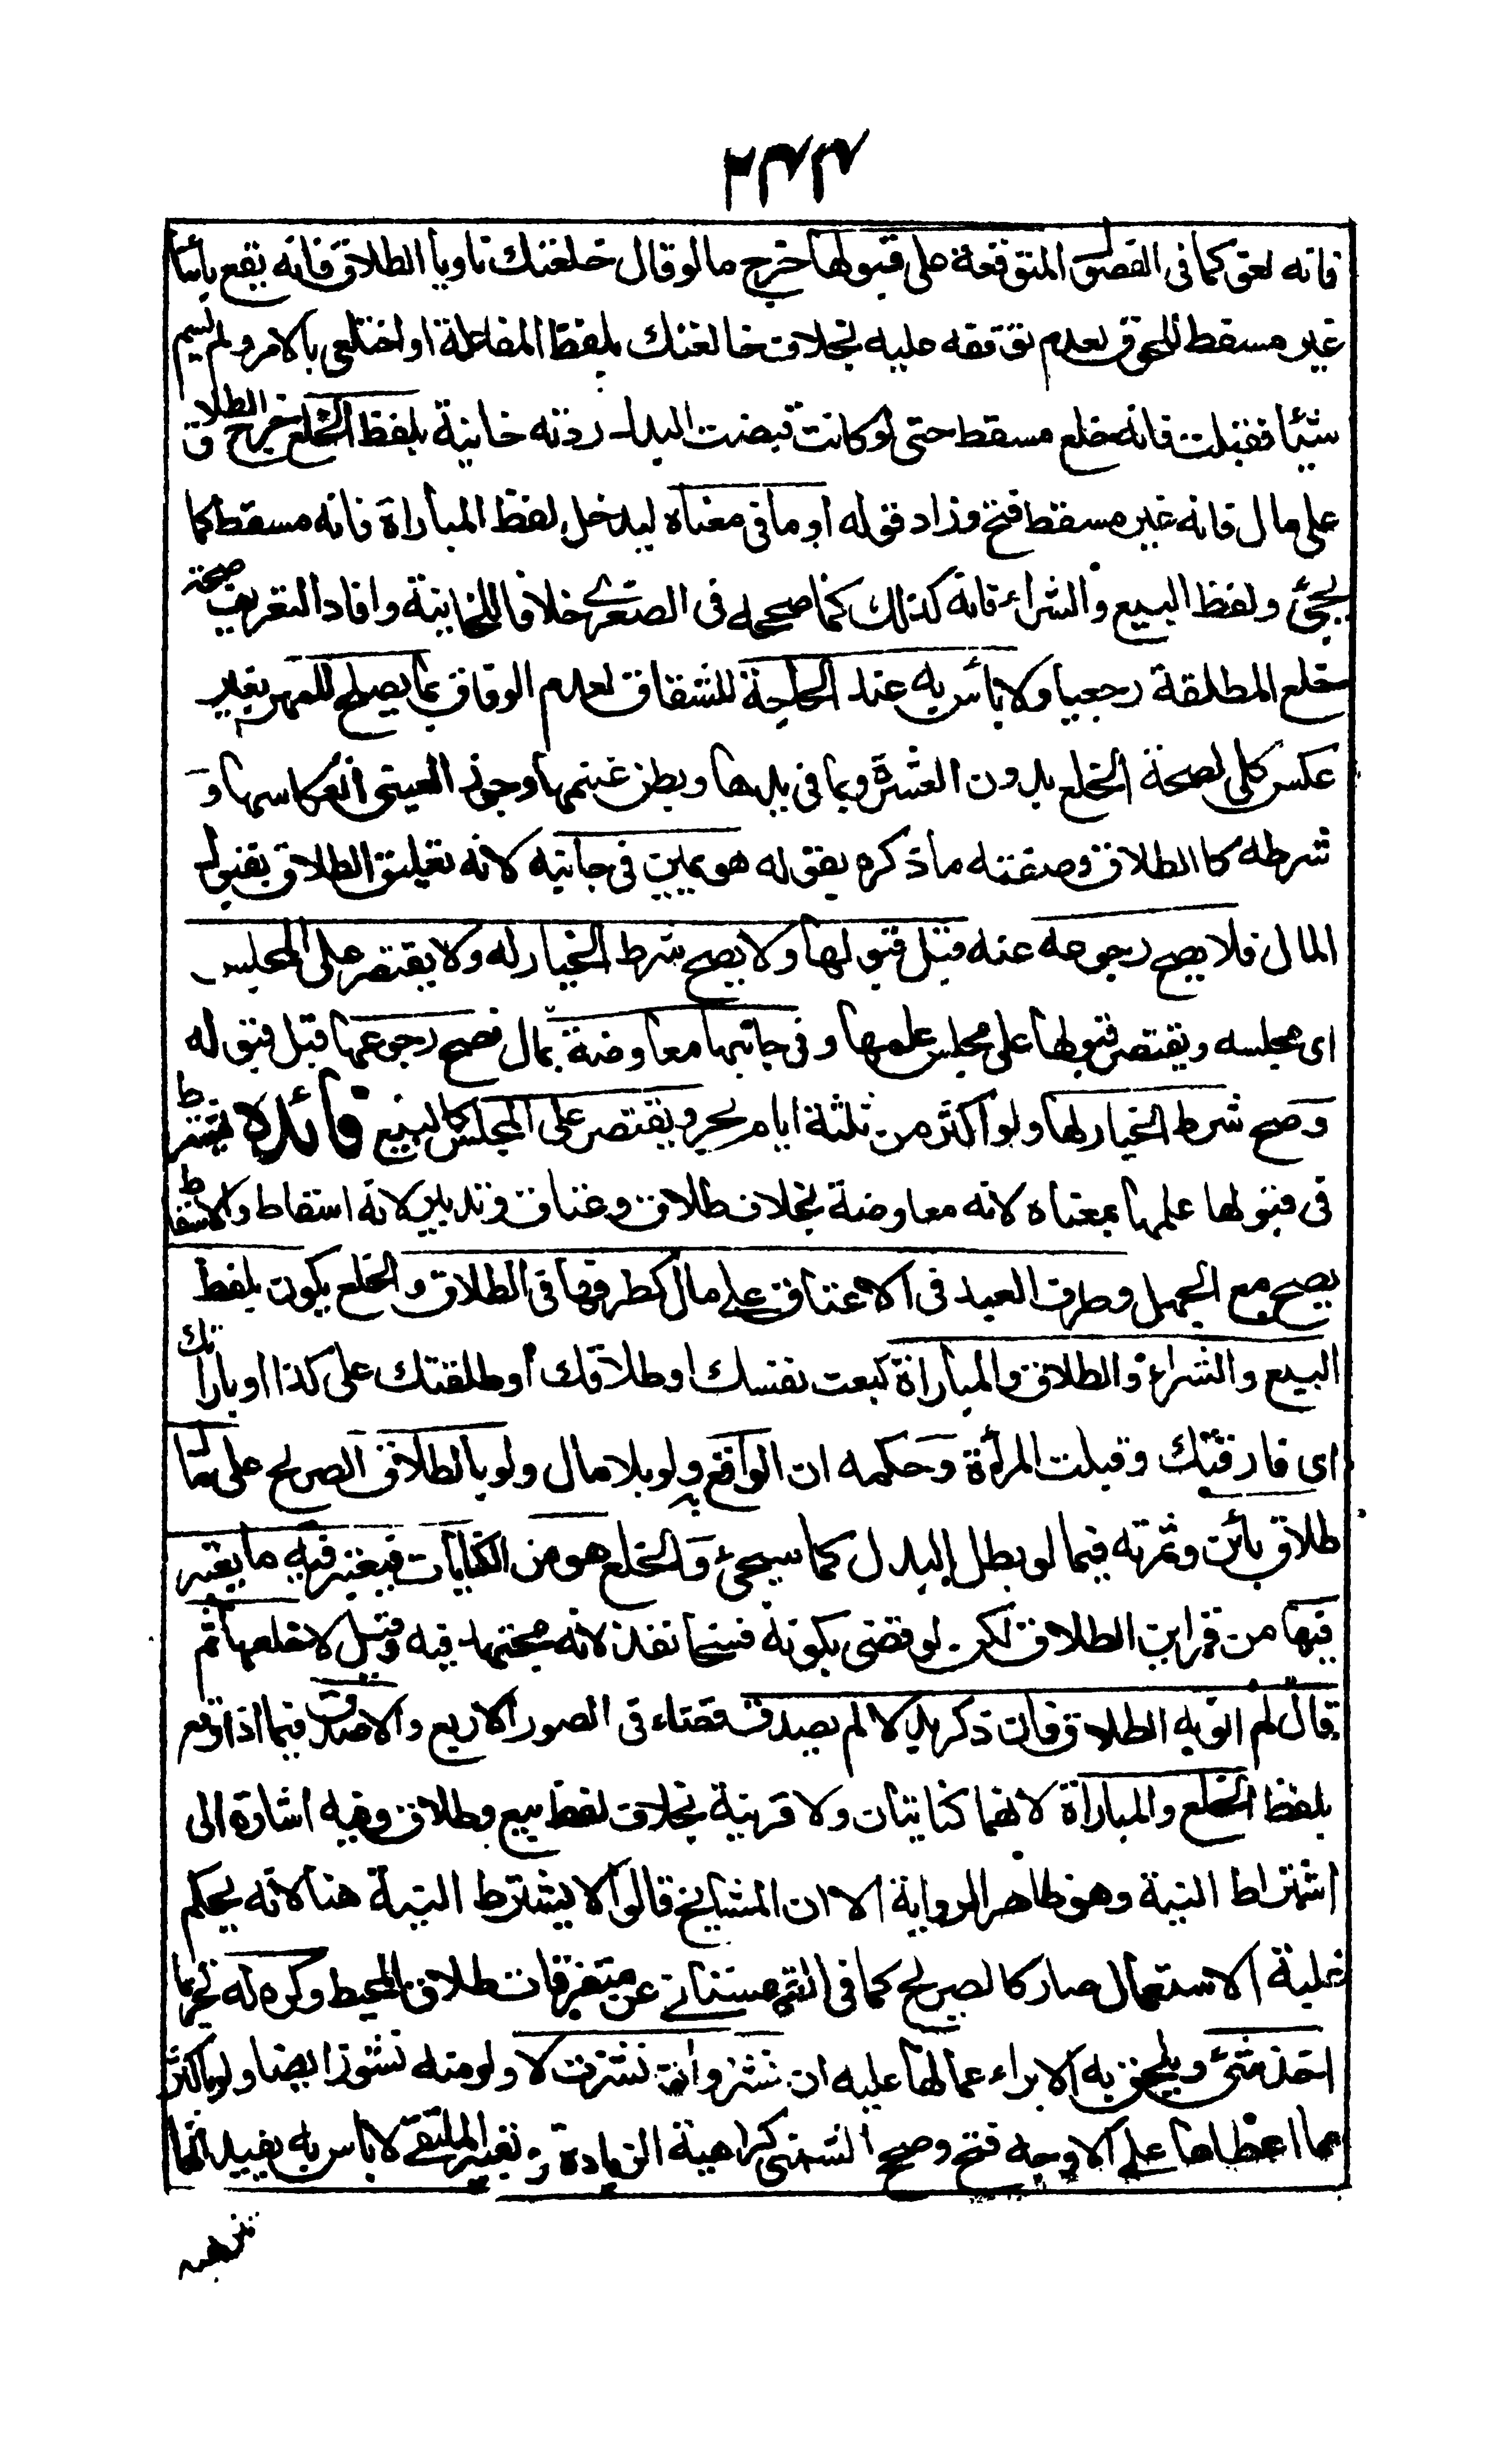 ٢٣٣
فانه لغو كما فى الفصول المتوقفة على قبولها خرج ما لو قال خلعتك ناويا الطلاق فانه يقع بائنا
غير مسقط للحقوق لعدم توقفه عليه بخلاف خالعتك بلفظ المفاعلة او اختلعى بالامر ولم يسم
شيئا فقبلت فانه خلع مسقط حتى لو كانت قبضت البدل ردته خانية بلفظ الخلع خرج الطلاق
على مال فانه غير مسقط فتح وزاد قوله او ما فى معناه ليدخل لفظ المباراة فانه مسقط كما
يجئ ولفظ البيع والشراء فانه كذلك كما صححه فى الصغرى خلافا للخانية وافاد التعريف صحة
خلع المطلقة رجعيا ولا بأس به عند الحاجة للشقاق لعدم الوفاق بما يصلح للمهر بغير
عكس كلى لصحة الخلع بدون العشرة وبما فى يدها وبطن غنمها وجوز العينى انعكاسها و
شرطه كالطلاق وصفته ما ذكره بقوله هو يمين فى جانبه لانه تعليق الطلاق بقبول
المال فلا يصح رجوعه عنه قبل قبولها ولا يصح شرط الخيار له ولا يقتصر على المجلس
اى مجلسه ويقتصر قبولها على مجلس علمها وفى جانبها معاوضة بمال فصح رجوعها قبل قبوله
وصح شرط الخيار لها ولو اكثر من ثلثة ايام بحر ويقتصر على المجلس كالبيع فائدة يشترط
فى قبولها علمها بمعناه لانه معاوضة بخلاف طلاق وعتاق وتدبير لانه اسقاط والاسقاط
يصح مع الجهل وطرف العبد فى الاعتاق على مال كطرفها فى الطلاق والخلع يكون بلفظ
البيع والشراء والطلاق والمباراة كبعت نفسك او طلاقك او طلقتك على كذا او باراتك
اى فارقتك وقبلت المرأة وحكمه ان الواقع به ولو بلا مال ولو بالطلاق الصريح على مال
طلاق بائن وثمرته فيما لو بطل البدل كما سيجئ والخلع هو من الكنايات فيعتبر فيه ما يعتبر
فيها من قراين الطلاق لكن لو قضى بكونه فسخا نفذ لانه مجتهد فيه وقيل لا خلعها ثم
قال لم انو به الطلاق فان ذكر بدلا لم يصدق قضاء فى الصور الاربع والا صدق فيما اذا وقع
بلفظ الخلع والمباراة لانهما كنايتان ولا قرينة بخلاف لفظ بيع وطلاق وفيه اشارة الى
اشتراط النية وهو ظاهر الرواية الا ان المشايخ قالوا لا يشترط النية هنا لانه بحكم
غلبة الاستعمال صار كالصريح كما فى القهستانى عن متفرقات طلاق المحيط وكره له تحريما
اخذ شئ ويلحق به الابراء عما لها عليه ان نشز وان نشزت لا ولو منه نشوز ايضا ولو باكثر
مما اعطاها على الاوجه فتح وصحح الشمنى كراهية الزيادة وتعبير الملتقى لا باس به يفيد انها
تنزيهية